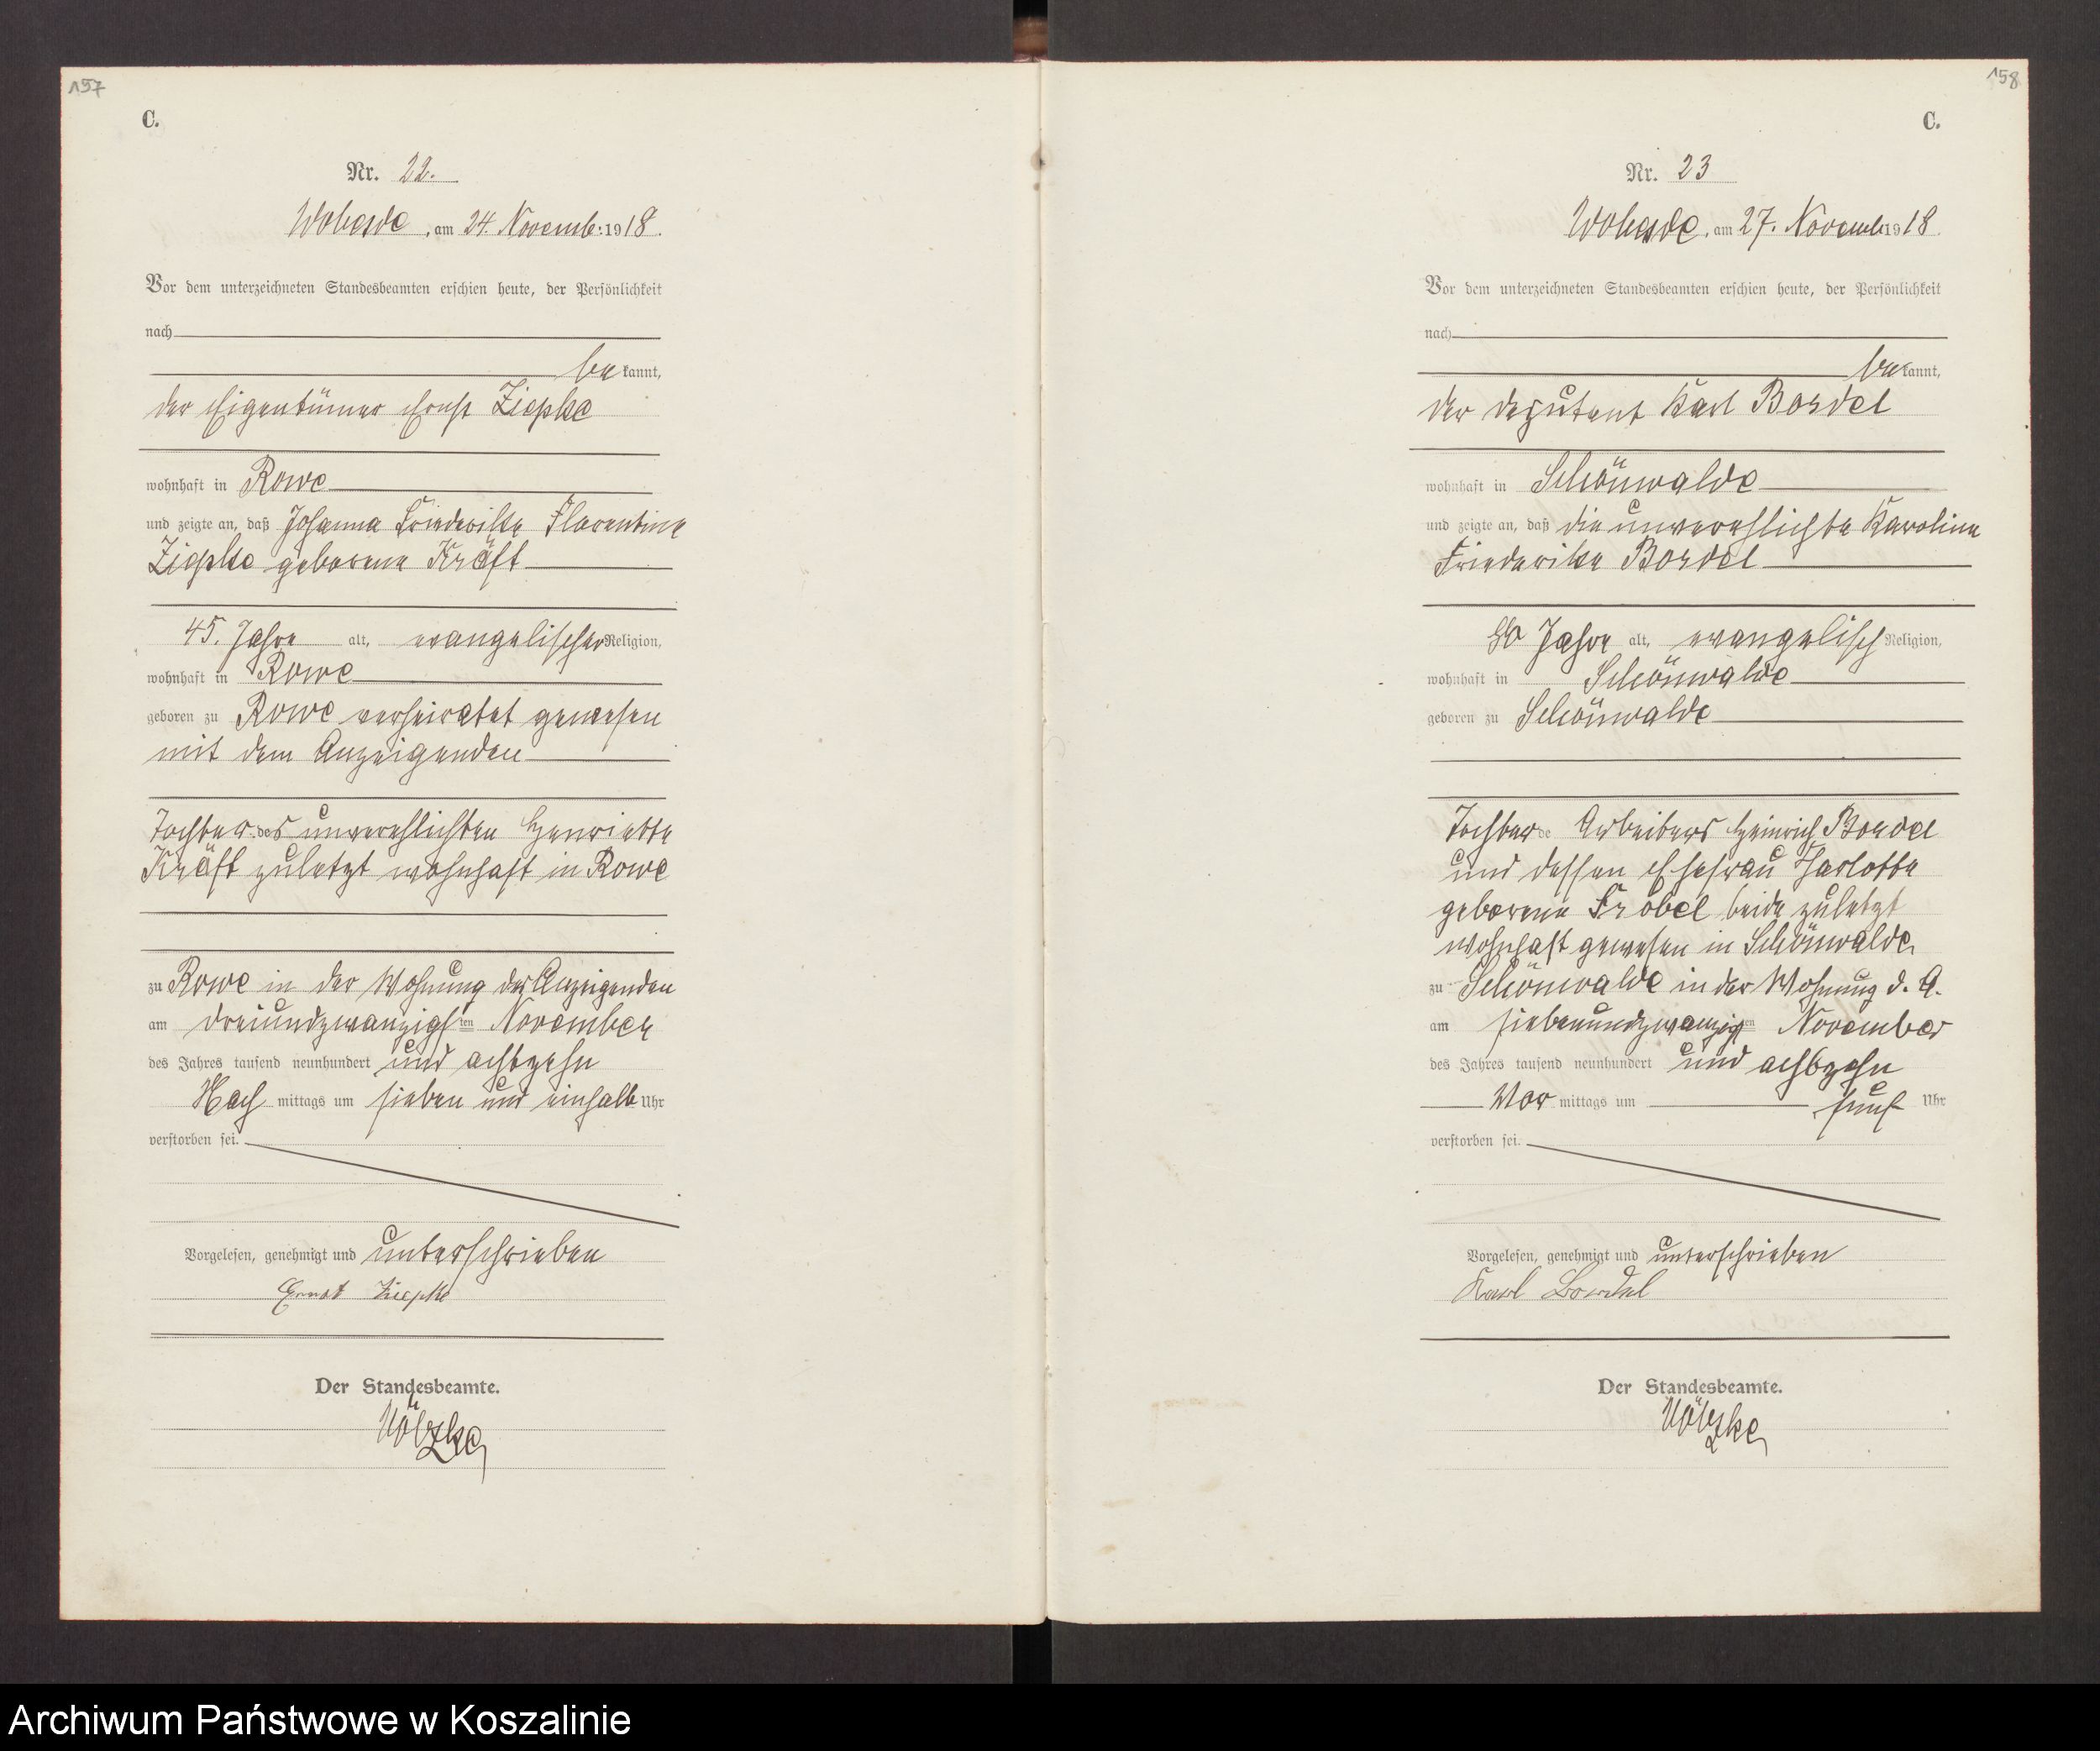 157
C.
Nr. 22.
Wobesde, am 24. Novemb: 1918.
Vor dem unterzeichneten Standesbeamten erschien heute, der Persönlichkeit
nach
bekannt,
der Eigentümer Ernst Ziepke
wohnhaft in Rowe
und zeigte an, daß Johanna Friederike Florentine
Ziepke geborene Kräft
45. Jahre alt, evangelischer Religion,
wohnhaft in Rowe
geboren zu Rowe verheiratet gewesen
mit dem Anzeigenden
Tochter des unverehlichten Henriette
Kräft zuletzt wohnhaft in Rowe
zu Rowe in der Wohnung des Anzeigenden
am dreiundzwanzigsten November
des Jahres tausend neunhundert und achtzehn
Nach mittags um sieben und einhalb Uhr
verstorben sei.
Vorgelesen, genehmigt und unterschrieben
Ernst Ziepke
Der Standesbeamte.
158
C.
Nr. 23
Wobesde, am 27. Novemb 1918.
Vor dem unterzeichneten Standesbeamten erschien heute, der Persönlichkeit
nach
bekannt,
der Deputant Karl Bordel
wohnhaft in Schönwalde
und zeigte an, daß die unverehlichte Karoline
Friederike Bordel
Jahre alt, evangelisch Religion,
wohnhaft in Schönwalde
geboren zu Schönwalde
Tochter de Arbeiters Heinrich Bordel
und dessen Ehefrau Harlotte
geborene Fröbel beide zuletzt
wohnhaft gewesen in Schönwalde
zu Schönwalde in der Wohnung d. A.
am siebenundzwanzigsten November
des Jahres tausend neunhundert und achtzehn
Vor mittags um fünf Uhr
verstorben sei.
Vorgelesen, genehmigt und unterschrieben
Karl Bordel
Der Standesbeamte.
Archiwum Państwowe w Koszalinie